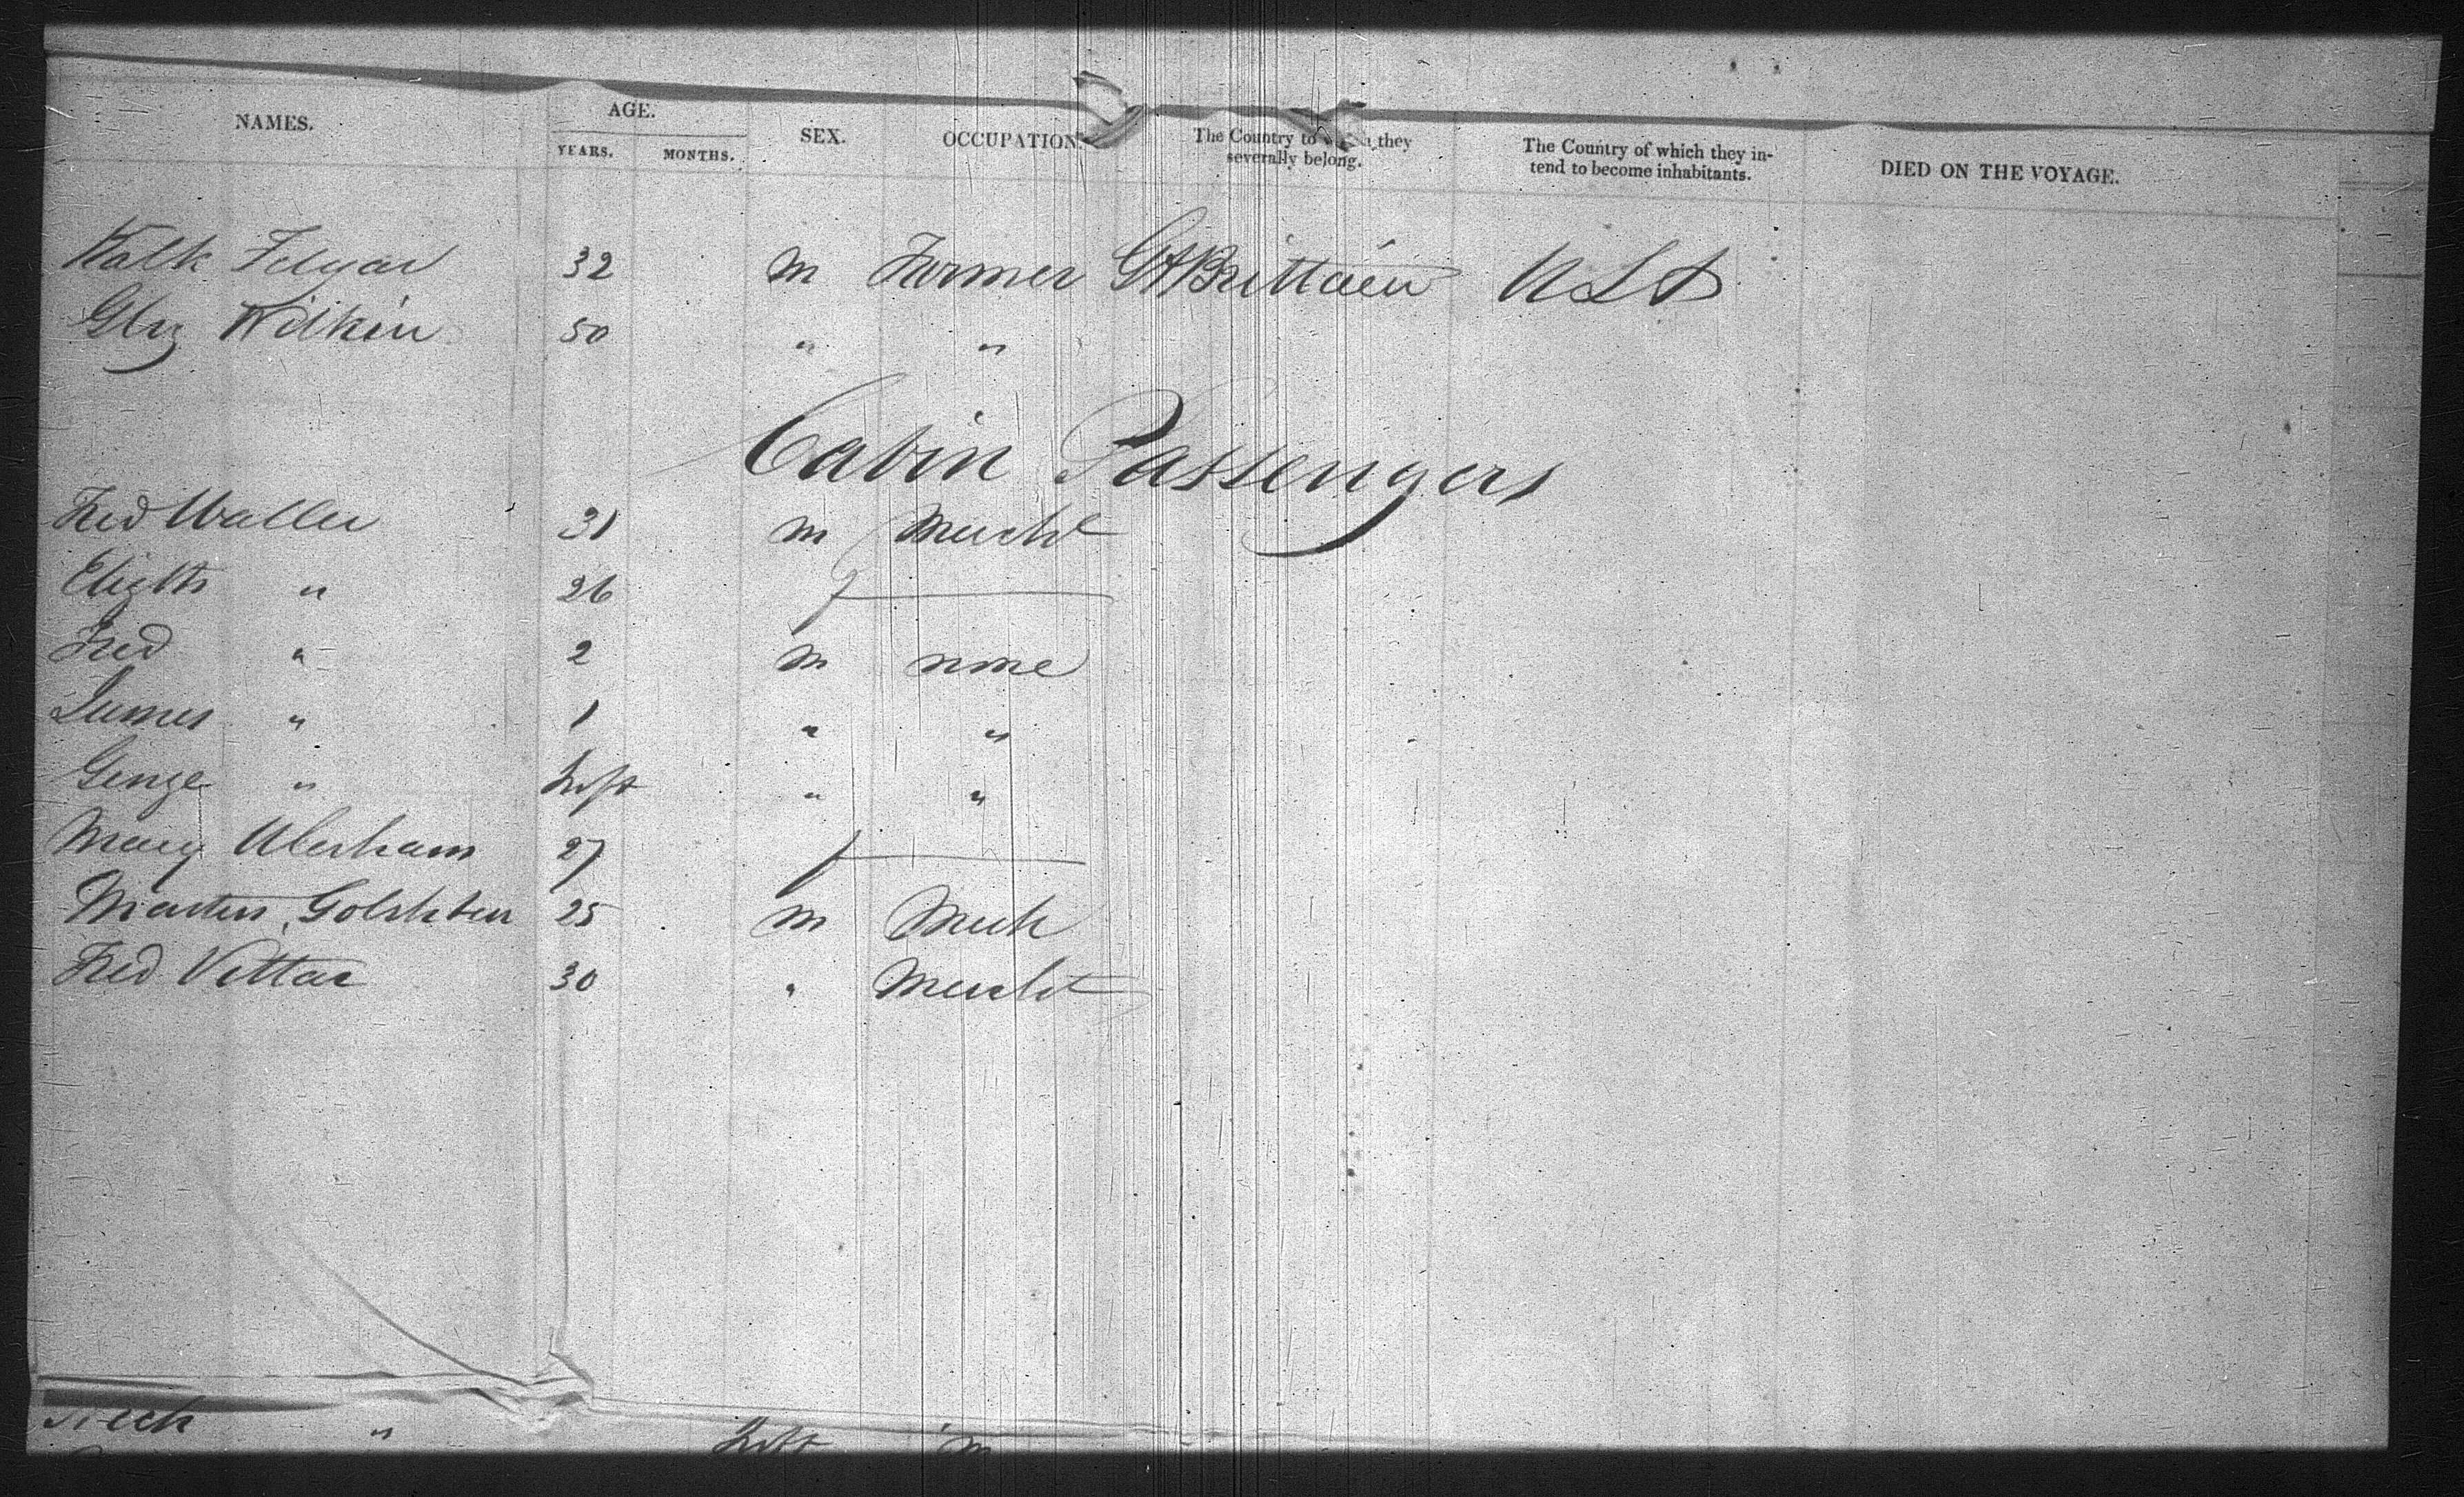 NAMES. AGE. YEARS. MONTHS. SEX. OCCUPATION. The Country to they severally belong. The Country of which they intend to become inhabitants. DIED ON THE VOYAGE.
32 m Farmer Gt Brittain USA
50 " "
Cabin Passengers
Fred Waller 31 m Mercht
Elizth " 26 f
Fred " 2 m none
James " 1 " "
George " Inft " "
Mary Abraham 27 f
Martin 25 m Mech
Fred Vettar 30 " Mercht
" Inft m